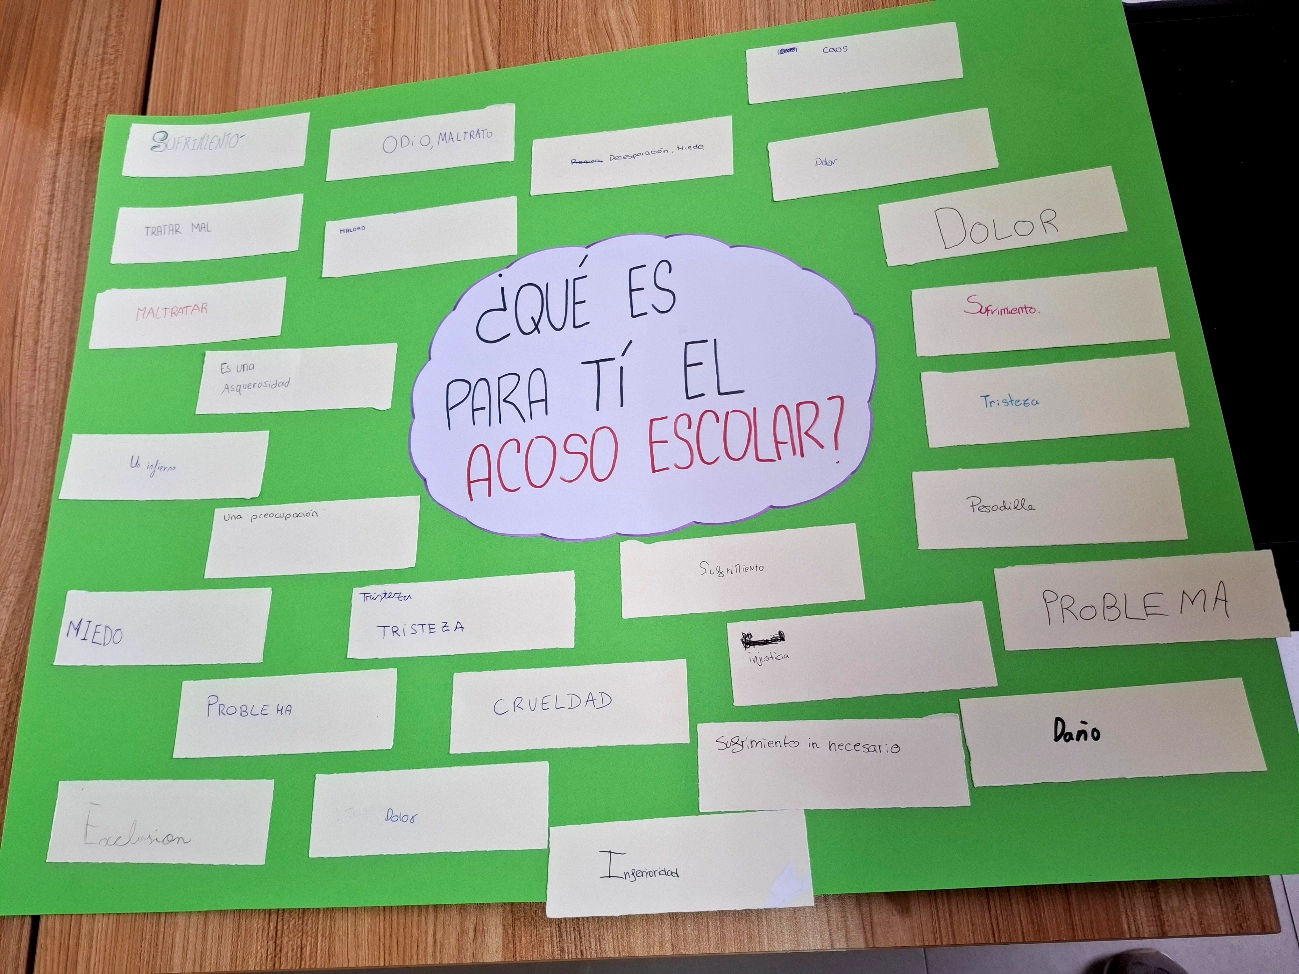 ¿QUÉ ES
PARA TÍ EL
ACOSO ESCOLAR?
SUFRIMIENTO
ODiO, MALTRATO
Desesperación, Miedo
Caos
Dolor
DOLOR
TRATAR MAL
MALTRATAR
Sufrimiento.
Es una
Asquerosidad
Tristeza
Un infierno
Una preocupación
Pesadilla
Sufrimiento
PROBLEMA
MIEDO
Tristeza
TRiSTEZA
injusticia
PROBLEMA
CRUELDAD
Sufrimiento in necesario
Daño
Exclusion
Dolor
Inferioridad